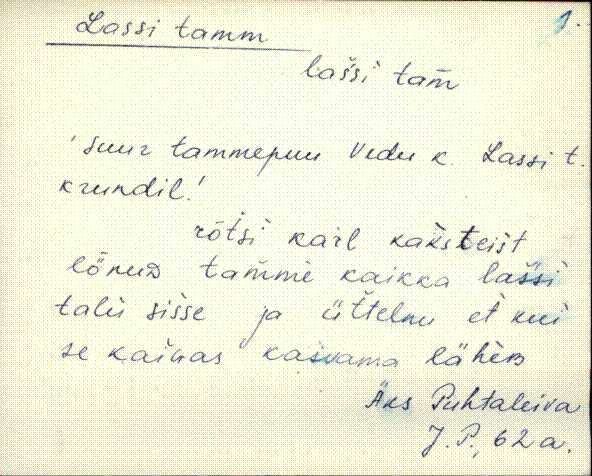 1.
Lassi tamm
lašsi tam̄
'suur tammepuu Vedu k. Lassi t.
krundil!
rõtsi karl kaksteist
lõnud tam̄me kaikka lašsi
talu sisse ja üttelnu et kui
se kaikas kasvama lähеʙ
Äks Puhtaleiva
J. P., 62 a.